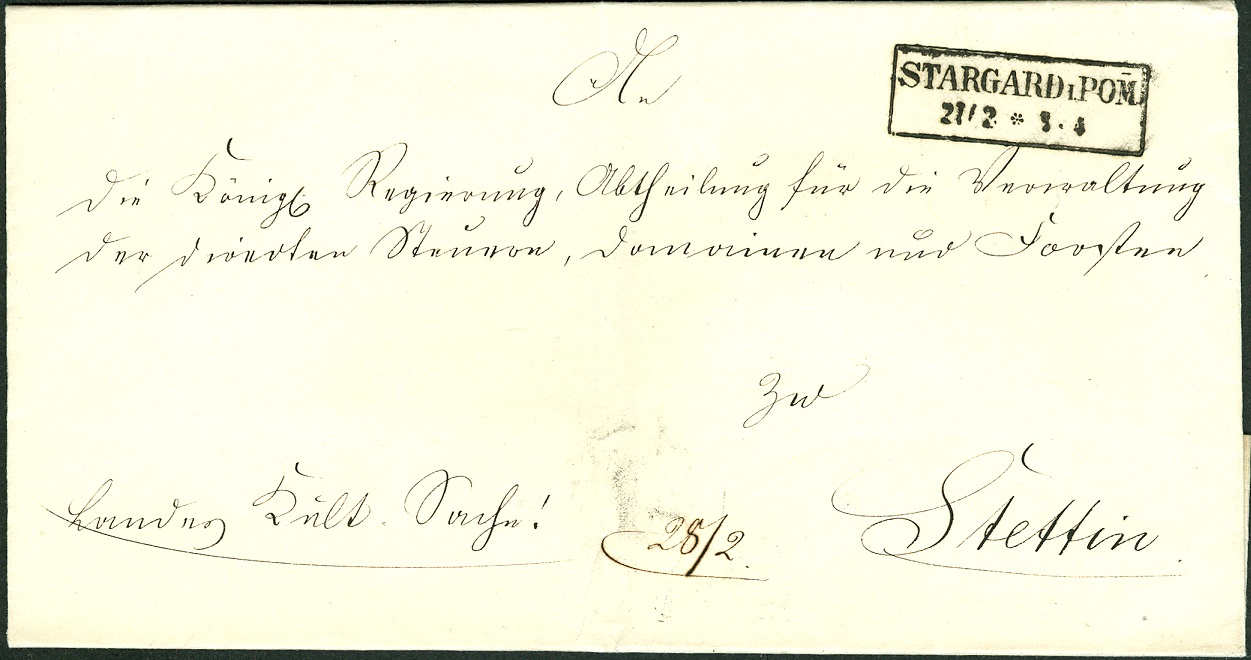 An
STARGARD I. POM̄.
27/2 * 3-4
die Königl Regierung, Abtheilung für die Verwaltung
der directen Steuern, Domainen und Forsten
zu
Stettin.
Landes Kult. Sache!
28/2.